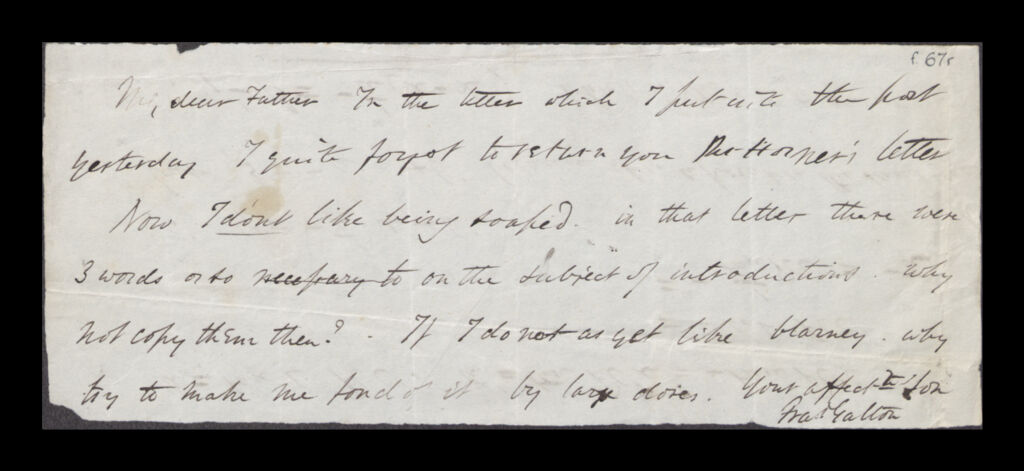 f. 67r
My dear Father In the letter which I put into the post
yesterday I quite forgot to return you Horner's letter
Now I dont like being soaped. in that letter there were
3 words or so necessary to on the subject of introductions. why
not copy them then? - If I do not as yet like blarney. why
try to make me fond of it by large doses. Your affecte Son
Fras Galton